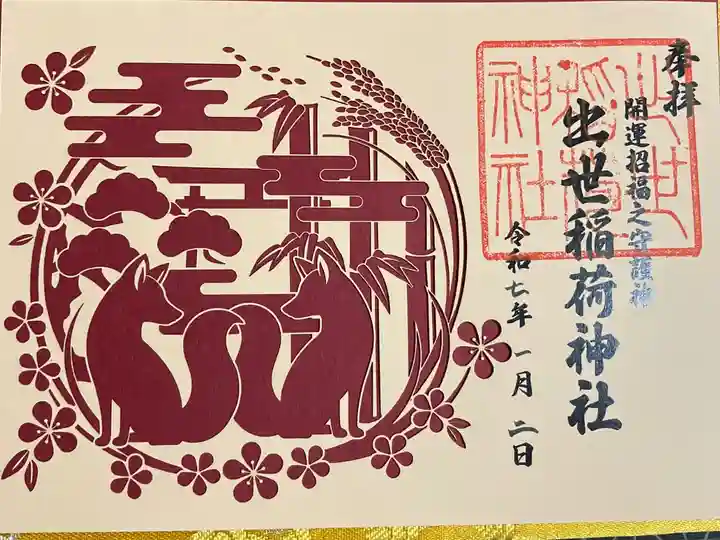 奉拝
開運招福之守護神
出世稲荷神社
令和七年 一月 二日
出世
稲荷
神社